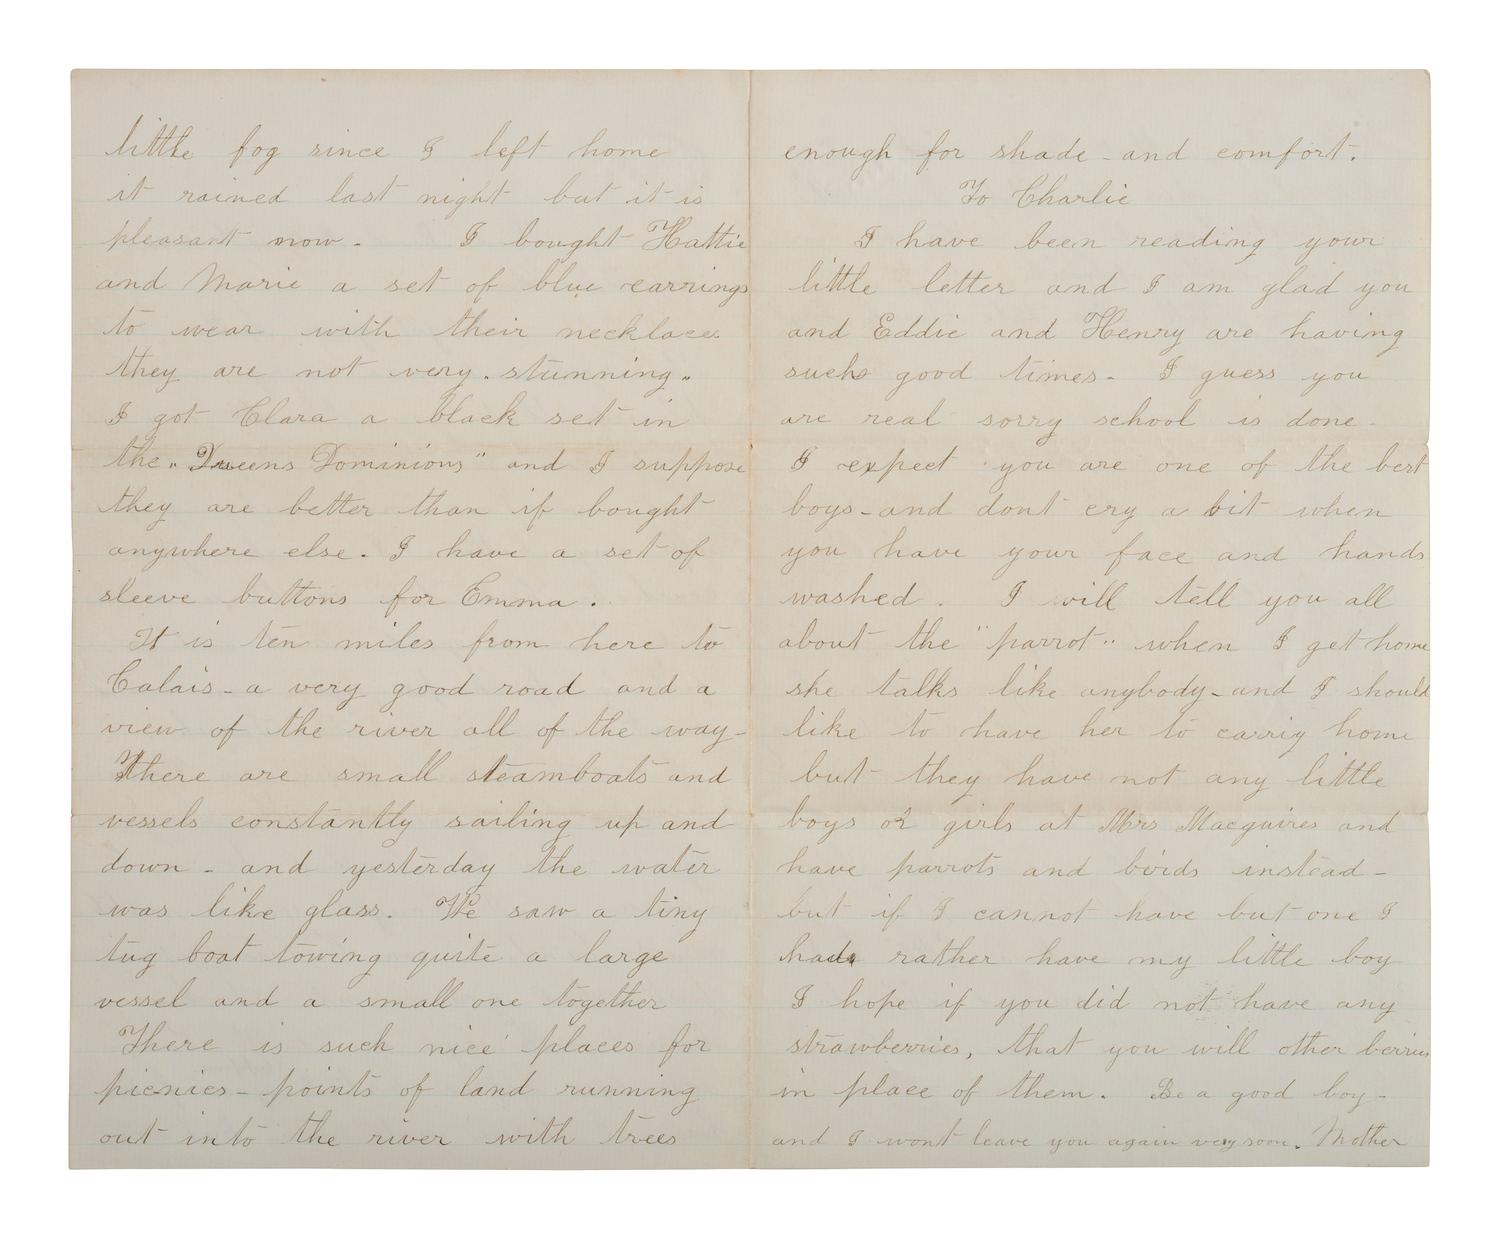 little fog since I left home
it rained last night but it is
pleasant now - I bought Hattie
and Marie a set of blue earrings
to wear with their necklaces
they are not very "stunning"
I got Clara a black set in
the "Queens Dominions" and I suppose
they are better than if bought
anywhere else. I have a set of
sleeve buttons for Emma.
It is ten miles from here to
Calais - a very good road and a
view of the river all of the way -
There are small steamboats and
vessels constantly sailing up and
down - and yesterday the water
was like glass. We saw a tiny
tug boat towing quite a large
vessel and a small one together
There is such nice places for
picnics - points of land running
out into the river with trees
enough for shade - and comfort.
To Charlie
I have been reading your
little letter and I am glad you
and Eddie and Henry are having
such good times - I guess you
are real sorry school is done.
I expect you are one of the best
boys - and dont cry a bit when
you have your face and hands
washed. I will tell you all
about the "parrot" when I get home
she talks like anybody - and I should
like to have her to carrig home
but they have not any little
boys or girls at Mrs Macguires and
have parrots and birds instead -
but if I cannot have but one I
had rather have my little boy
I hope if you did not have any
strawberries, that you will other berries
in place of them. Be a good boy -
and I wont leave you again very soon. Mother